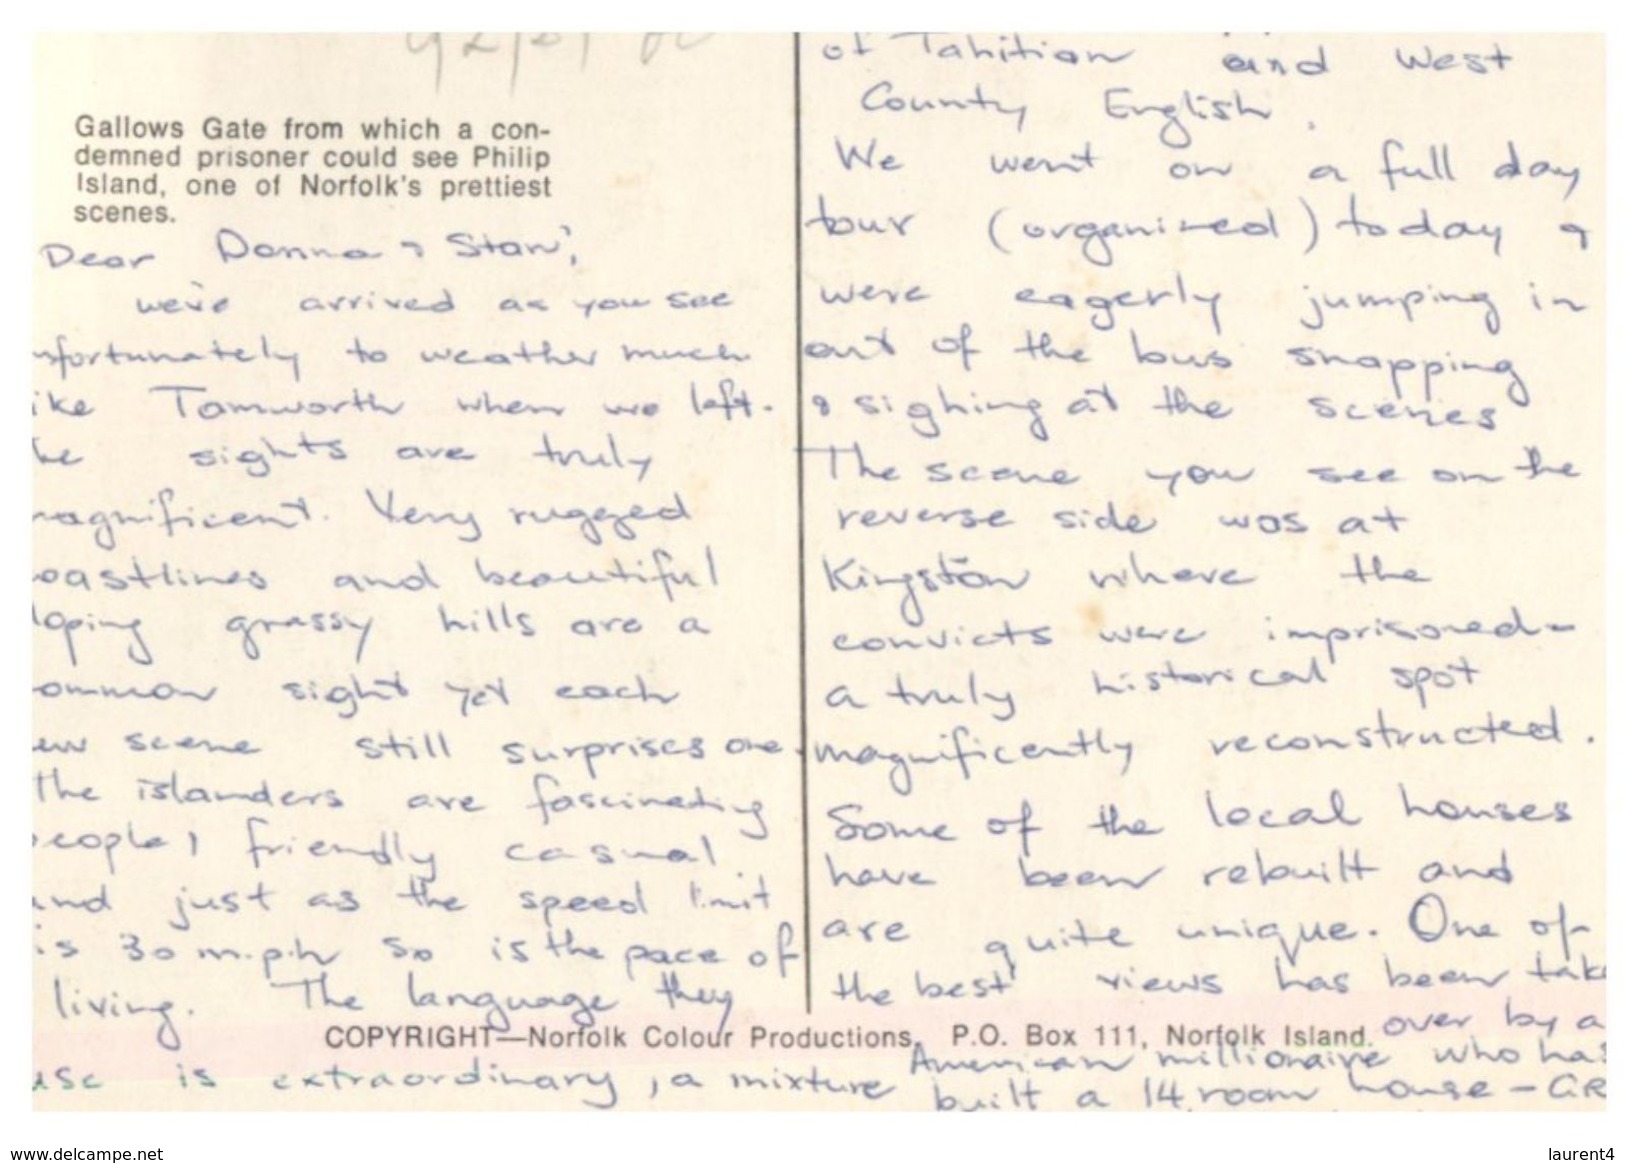 Gallows Gate from which a con-
demned prisoner could see Philip
Island, one of Norfolk's prettiest
scenes.
Dear Donna & Stan,
we've arrived as you see
nfortunately to weather much
ike Tamworth when we left.
he sights are truly
magnificent. Very rugged
oastlines and beautiful
loping grassy hills are a
ommon sight yet each
ew scene still surprises one.
The islanders are fascinating
people, friendly casual
and just as the speed limit
is 30 m.p.h so is the pace of
living. The language they
use is extraordinary, a mixture
of Tahitian and West
County English.
We went on a full day
tour (organised) today &
were eagerly jumping in
out of the bus snapping
& sighing at the scenes
The scene you see on the
reverse side was at
Kingston where the
convicts were imprisoned -
a truly historical spot
magnificently reconstructed.
Some of the local houses
have been rebuilt and
are quite unique. One of
the best views has been take
over by a
American millionaire who has
built a 14 room house - GR
COPYRIGHT—Norfolk Colour Productions, P.O. Box 111, Norfolk Island.
www.delcampe.net
laurent4